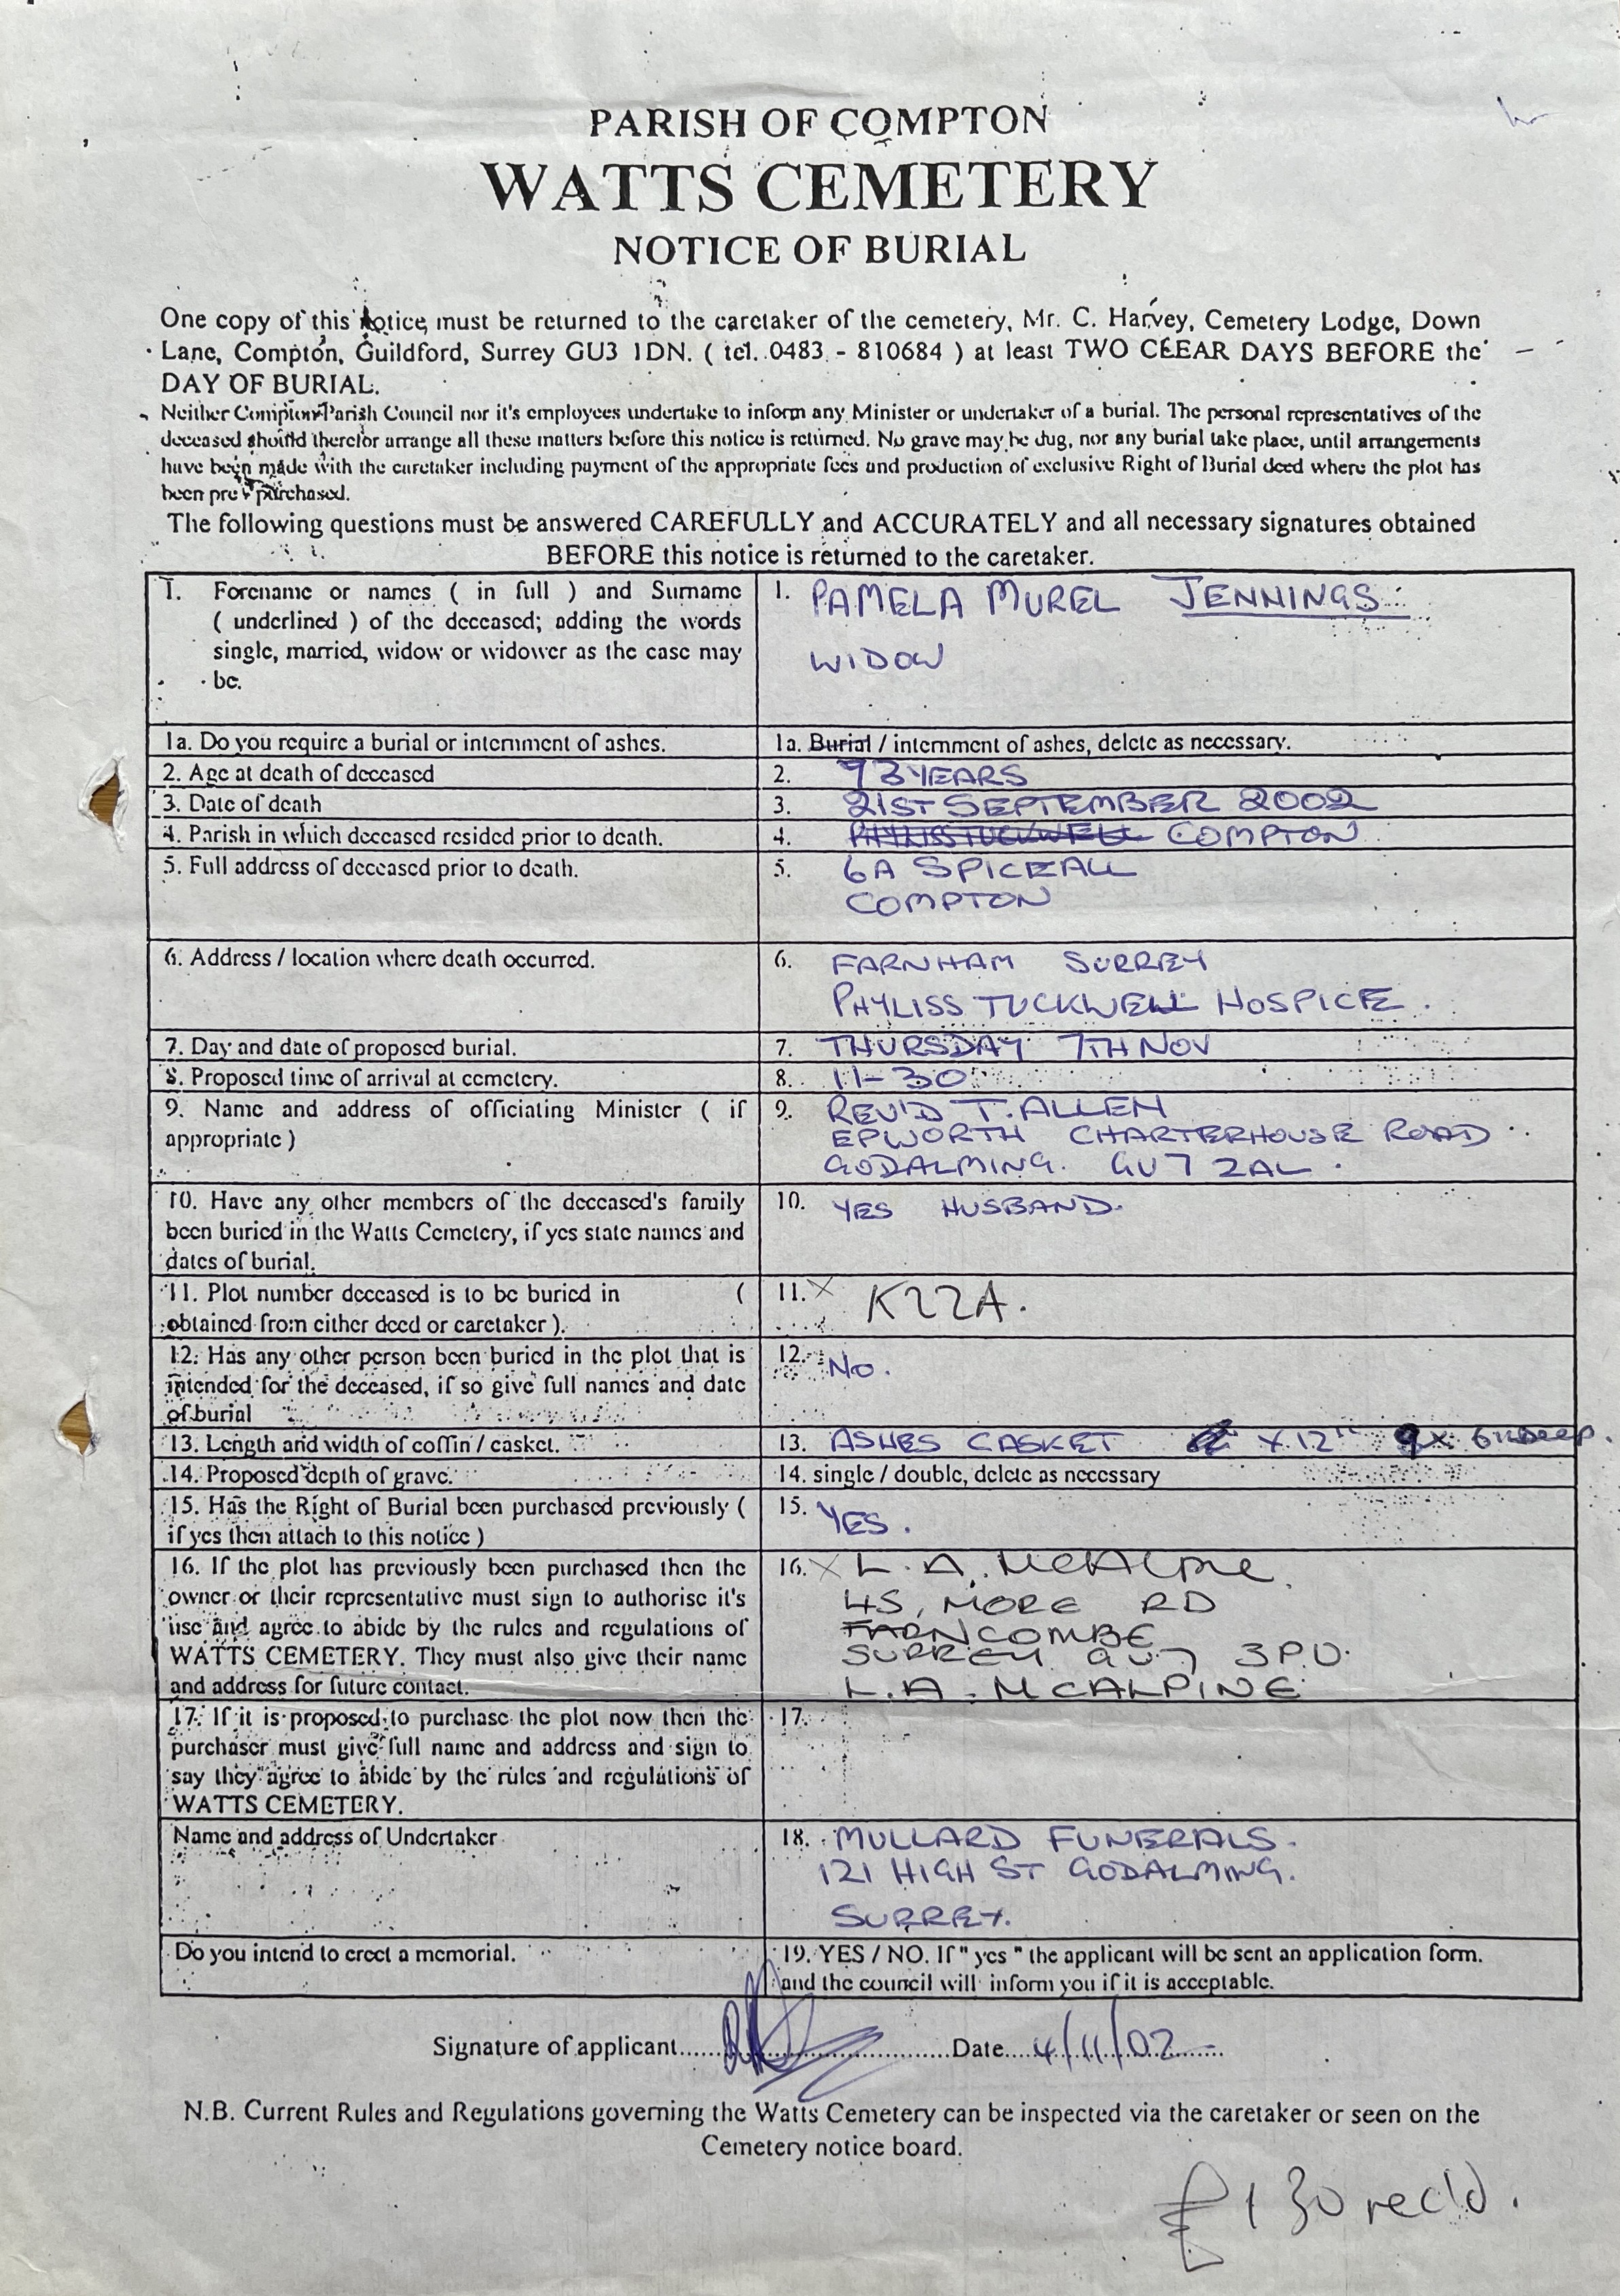 PARISH OF COMPTON
WATTS CEMETERY
NOTICE OF BURIAL
One copy of this notice must be returned to the caretaker of the cemetery, Mr. C. Harvey, Cemetery Lodge, Down
Lane, Compton, Guildford, Surrey GU3 1DN. ( tel. 0483 - 810684 ) at least TWO CLEAR DAYS BEFORE the
DAY OF BURIAL.
Neither Compton Parish Council nor it's employees undertake to inform any Minister or undertaker of a burial. The personal representatives of the
deceased should therefor arrange all these matters before this notice is returned. No grave may be dug, nor any burial take place, until arrangements
have been made with the caretaker including payment of the appropriate fees and production of exclusive Right of Burial deed where the plot has
been pre purchased.
The following questions must be answered CAREFULLY and ACCURATELY and all necessary signatures obtained
BEFORE this notice is returned to the caretaker.
1. Forename or names ( in full ) and Surname
( underlined ) of the deceased; adding the words
single, married, widow or widower as the case may
be.
1. PAMELA MUREL JENNINGS
WIDOW
1a. Do you require a burial or internment of ashes.
1a. Burial / internment of ashes, delete as necessary.
2. Age at death of deceased
2. 93 YEARS
3. Date of death
3. 21ST SEPTEMBER 2002
4. Parish in which deceased resided prior to death.
4. PHYLISS TUCKWELL COMPTON
5. Full address of deceased prior to death.
5. 6A SPICEALL
COMPTON
6. Address / location where death occurred.
6. FARNHAM SURREY
PHYLISS TUCKWELL HOSPICE.
7. Day and date of proposed burial.
7. THURSDAY 7TH NOV
8. Proposed time of arrival at cemetery.
8. 11-30
9. Name and address of officiating Minister ( if
appropriate )
9. REV'D T. ALLEN
EPWORTH CHARTERHOUSE ROAD
GODALMING. GU7 2AL.
10. Have any other members of the deceased's family
been buried in the Watts Cemetery, if yes state names and
dates of burial.
10. YES HUSBAND.
11. Plot number deceased is to be buried in (
obtained from either deed or caretaker ).
11. X K22A.
12. Has any other person been buried in the plot that is
intended for the deceased, if so give full names and date
of burial
12. NO.
13. Length and width of coffin / casket.
13. ASHES CASKET x 12" 9 x 6" DEEP.
14. Proposed depth of grave.
14. single / double, delete as necessary
15. Has the Right of Burial been purchased previously (
if yes then attach to this notice )
15. YES.
16. If the plot has previously been purchased then the
owner or their representative must sign to authorise it's
use and agree to abide by the rules and regulations of
WATTS CEMETERY. They must also give their name
and address for future contact.
16. X L. A. McAlpine.
45, MORE RD
FARNCOMBE
SURREY GU7 3PU.
L.A. MCALPINE
17. If it is proposed to purchase the plot now then the
purchaser must give full name and address and sign to
say they agree to abide by the rules and regulations of
WATTS CEMETERY.
17.
Name and address of Undertaker
18. MULLARD FUNERALS.
121 HIGH ST GODALMING.
SURREY.
Do you intend to erect a memorial.
19. YES / NO. If " yes " the applicant will be sent an application form.
and the council will inform you if it is acceptable.
Signature of applicant.......... Date....4/11/02......
N.B. Current Rules and Regulations governing the Watts Cemetery can be inspected via the caretaker or seen on the
Cemetery notice board.
£130 rec'd.